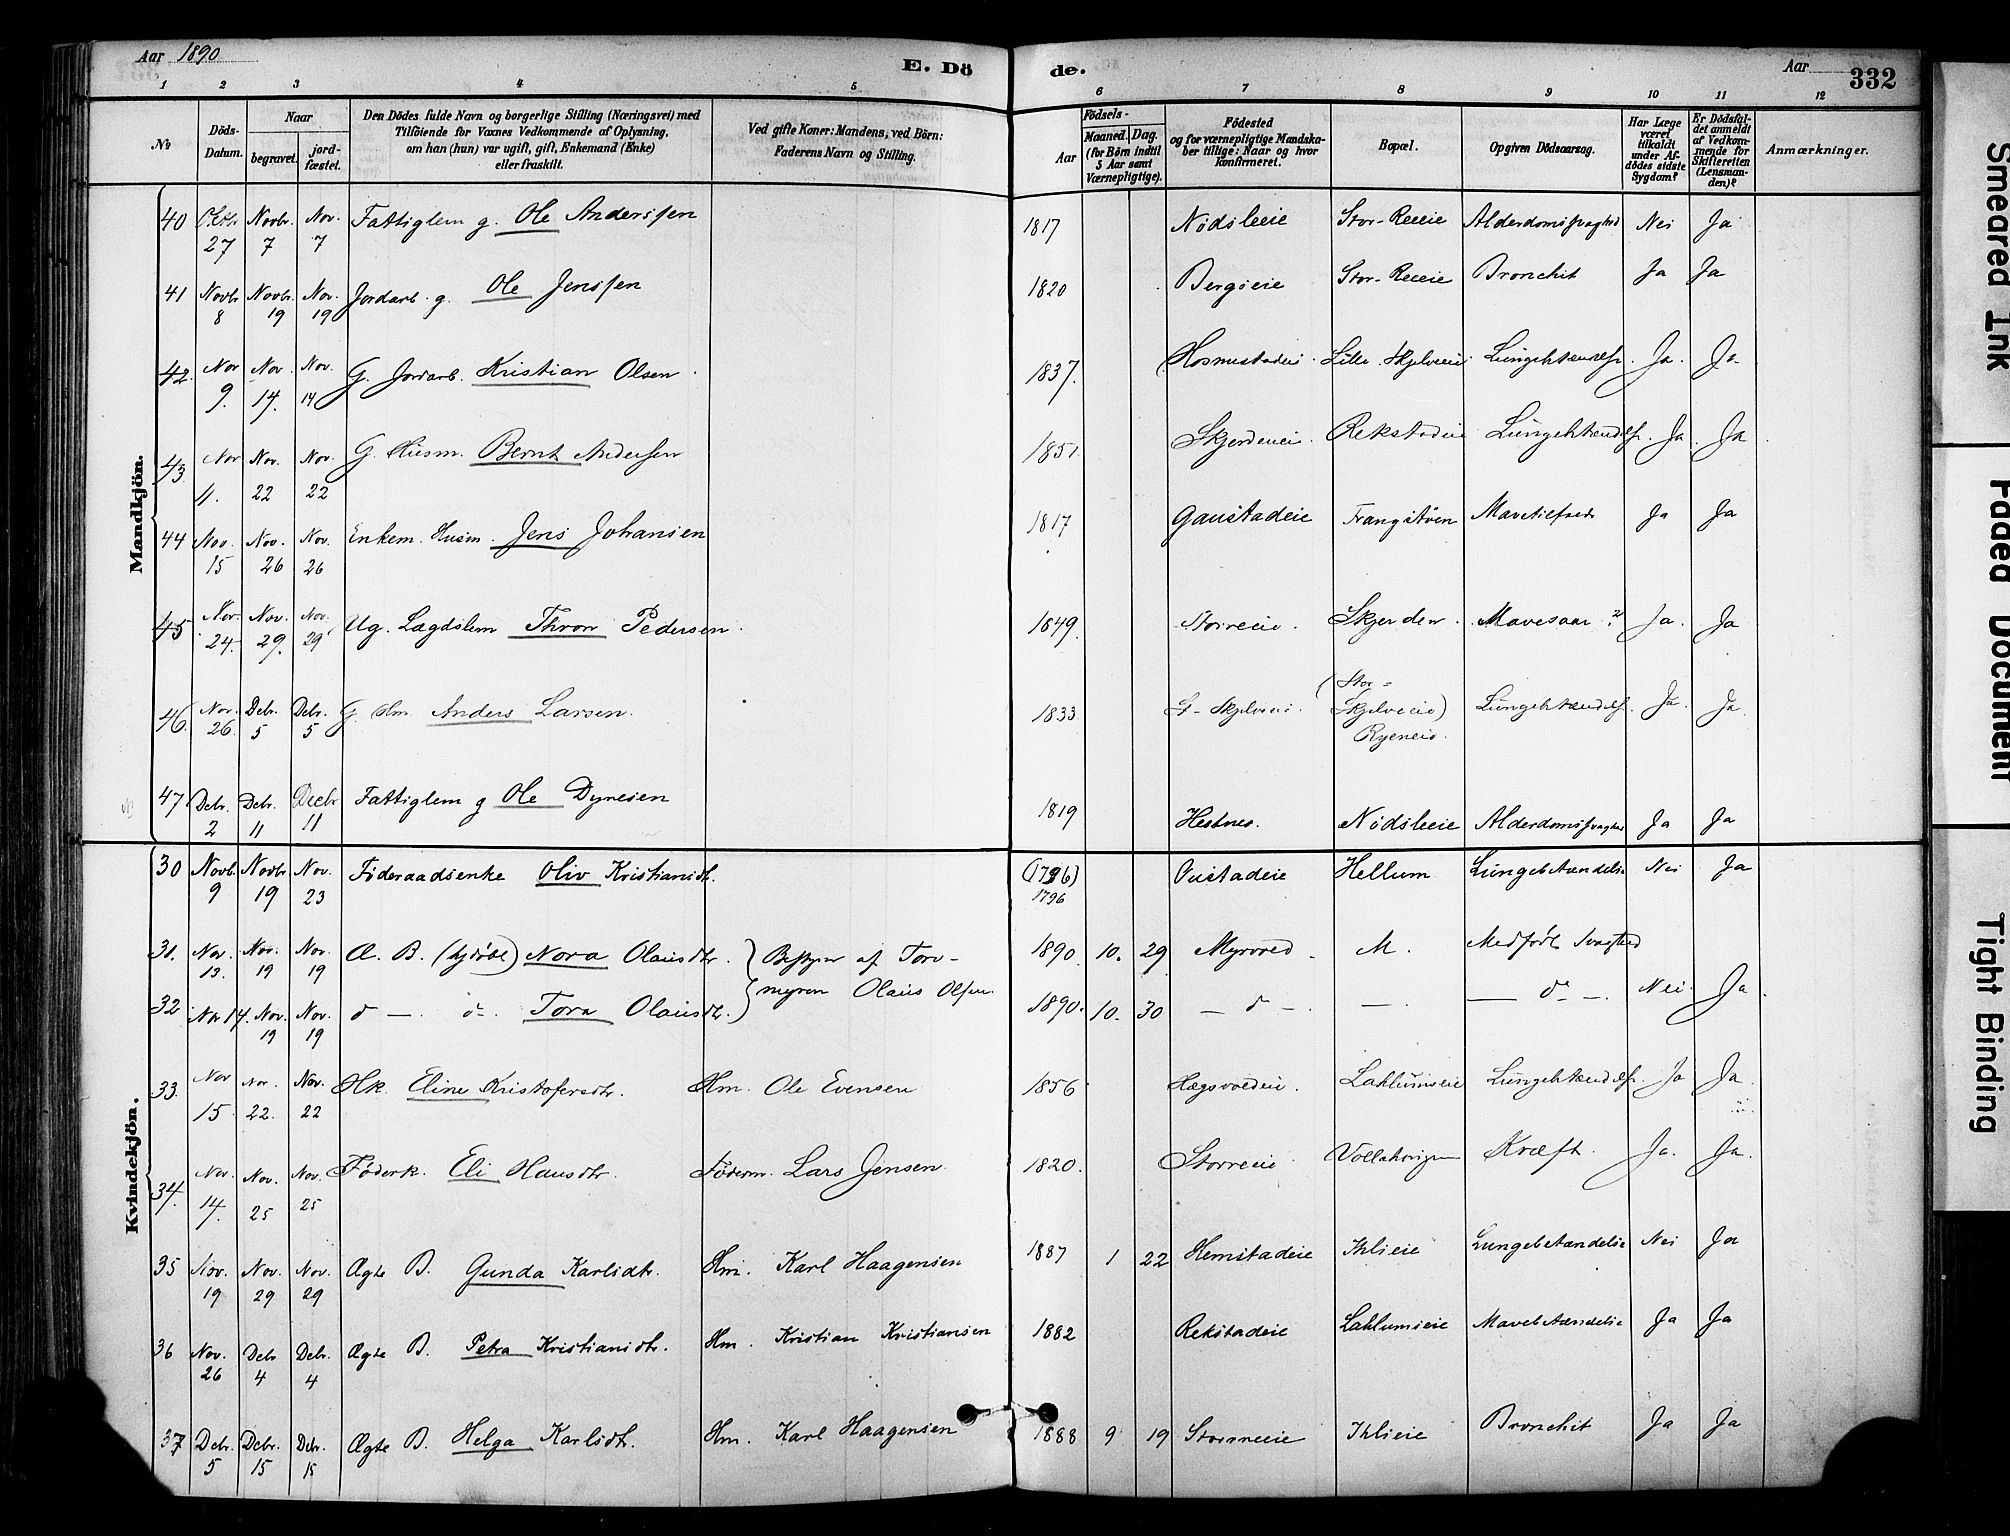 Aar 1890
E. Dö de.
Aar 332
1 2 3 4 5 6 7 8 9 10 11 12
№
Döds-Datum.
Naar begravet. jordfæstet.
Den Dödes fulde Navn og borgerlige Stilling (Næringsvei) med Tilföiende for Voxnes Vedkommende af Oplysning, om han (hun) var ugift, gift, Enkemand (Enke) eller fraskilt.
Ved gifte Koner: Mandens, ved Börn: Faderens Navn og Stilling.
Födsels-
Aar Maaned. Dag.
(for Börn indtil 5 Aar samt Værnepligtige).
Födested og for værnepligtige Mandskaber tillige: Naar og hvor konfirmeret.
Bopæl.
Opgiven Dödsaarsag.
Har Læge været tilkaldt under Afdödes sidste Sygdom?
Er Dödsfaldet anmeldt af Vedkommende for Skifteretten (Lensmanden)?
Anmærkninger.
Mandkjön.
40 Oktbr 27 Novbr. 7 Nov. 7 Fattiglem g. Ole Anderssen 1817 Nödsleeie Stor-Reeeie Alderdomssvaghed Nei Ja
41 Novbr 8 Novbr. 19 Nov. 19 Jordarb. g. Ole Jenssen 1820 Bergseie Stor-Reeeie Bronchit Ja Ja
42. Nov 9. Nov. 14. Nov. 14 G. Jordarb. Kristian Olsen 1837. Lille Skjelveeie Lungebtændels. Ja. Ja
43. Nov 11. Nov. 22 Nov. 22 G. Husm. Bernt Andersen 1851 Skjerdeneie. Rekstadeie Lungebtændels. Ja. Ja
44 Nov. 15 Nov. 26 Nov. 26 Enkem. Husm. Jens Johansen 1817 Gaustadeie Trangstuen Ja Ja
45 Nov. 24. Nov. 29. Nov. 29 Ug. Lægdslem Thron Pedersen. 1849. Storreeie Skjerden. Mavesaar? Ja. Ja
46. Nov. 26. Debr. 5 Debr. 5 G. Hm. Anders Larsen. 1833 St-Skjelveeie. (Stor-Skjelveeie) Ryeneie. Lungebtændels. Ja. Ja
47 Debr. 2 Debr. 11 Decbr 11 Fattiglem g Ole Dynesen 1819 Hestnes. Nödsleeie Alderdomssvaghed Ja Ja
Kvindekjön.
30 Novb. 9 Novbr. 19 Nov. 23 Föderaadsenke Oliv Kristiansdt. (1796) 1796 Oustadeie Hellum Lungebetændelse Nei Ja
31. Nov. 13. Nov. 19 Nov. 19 Æ. B. (hjdöbt) Nora Olausdtr. } Bestyrer af Torv- 1890. 10. 29 Myrvod M. Medfödt Svaghed
32 Nov 14. Nov. 19 Nov. 19 d —. d-. Tora Olausdtr. } myren Olaus Olsen. 1890. 10. 30 — d — —. — d —. Nei. Ja
33. Nov 15 Nov. 22. Nov. 22 Hk. Eline Kristofersdtr. Hm. Ole Evensen 1856 Hægsvoldeie. Laklumseie Lungebtændels. Ja Ja
34. Nov. 14. Nov. 25 Nov. 25 Föderk. Eli Hansdtr. Föderm. Lars Jensen 1820. Storreeie Kræft. Ja. Ja.
35 Nov. 19 Nov. 29 Nov. 29 Ægte B. Gunda Karlsdtr. Hm. Karl Haagensen 1887 1 22 Hemstadeie Ihlieie Lungebetændelse Nei Ja
36 Nov. 26 Debr 4 Debr. 4 Ægte B. Petra Kristiansdtr. Hm. Kristian Kristiansen 1882 Rekstadeie Laklumseie Mavebetændelse Ja Ja
37 Debr. 5 Debr. 15 Debr. 15 Ægte B. Helga Karlsdtr. Hm. Karl Haagensen 1888 9 19 Ihlieie Bronchit Ja Ja
Smeared Ink
Faded Document
Tight Binding